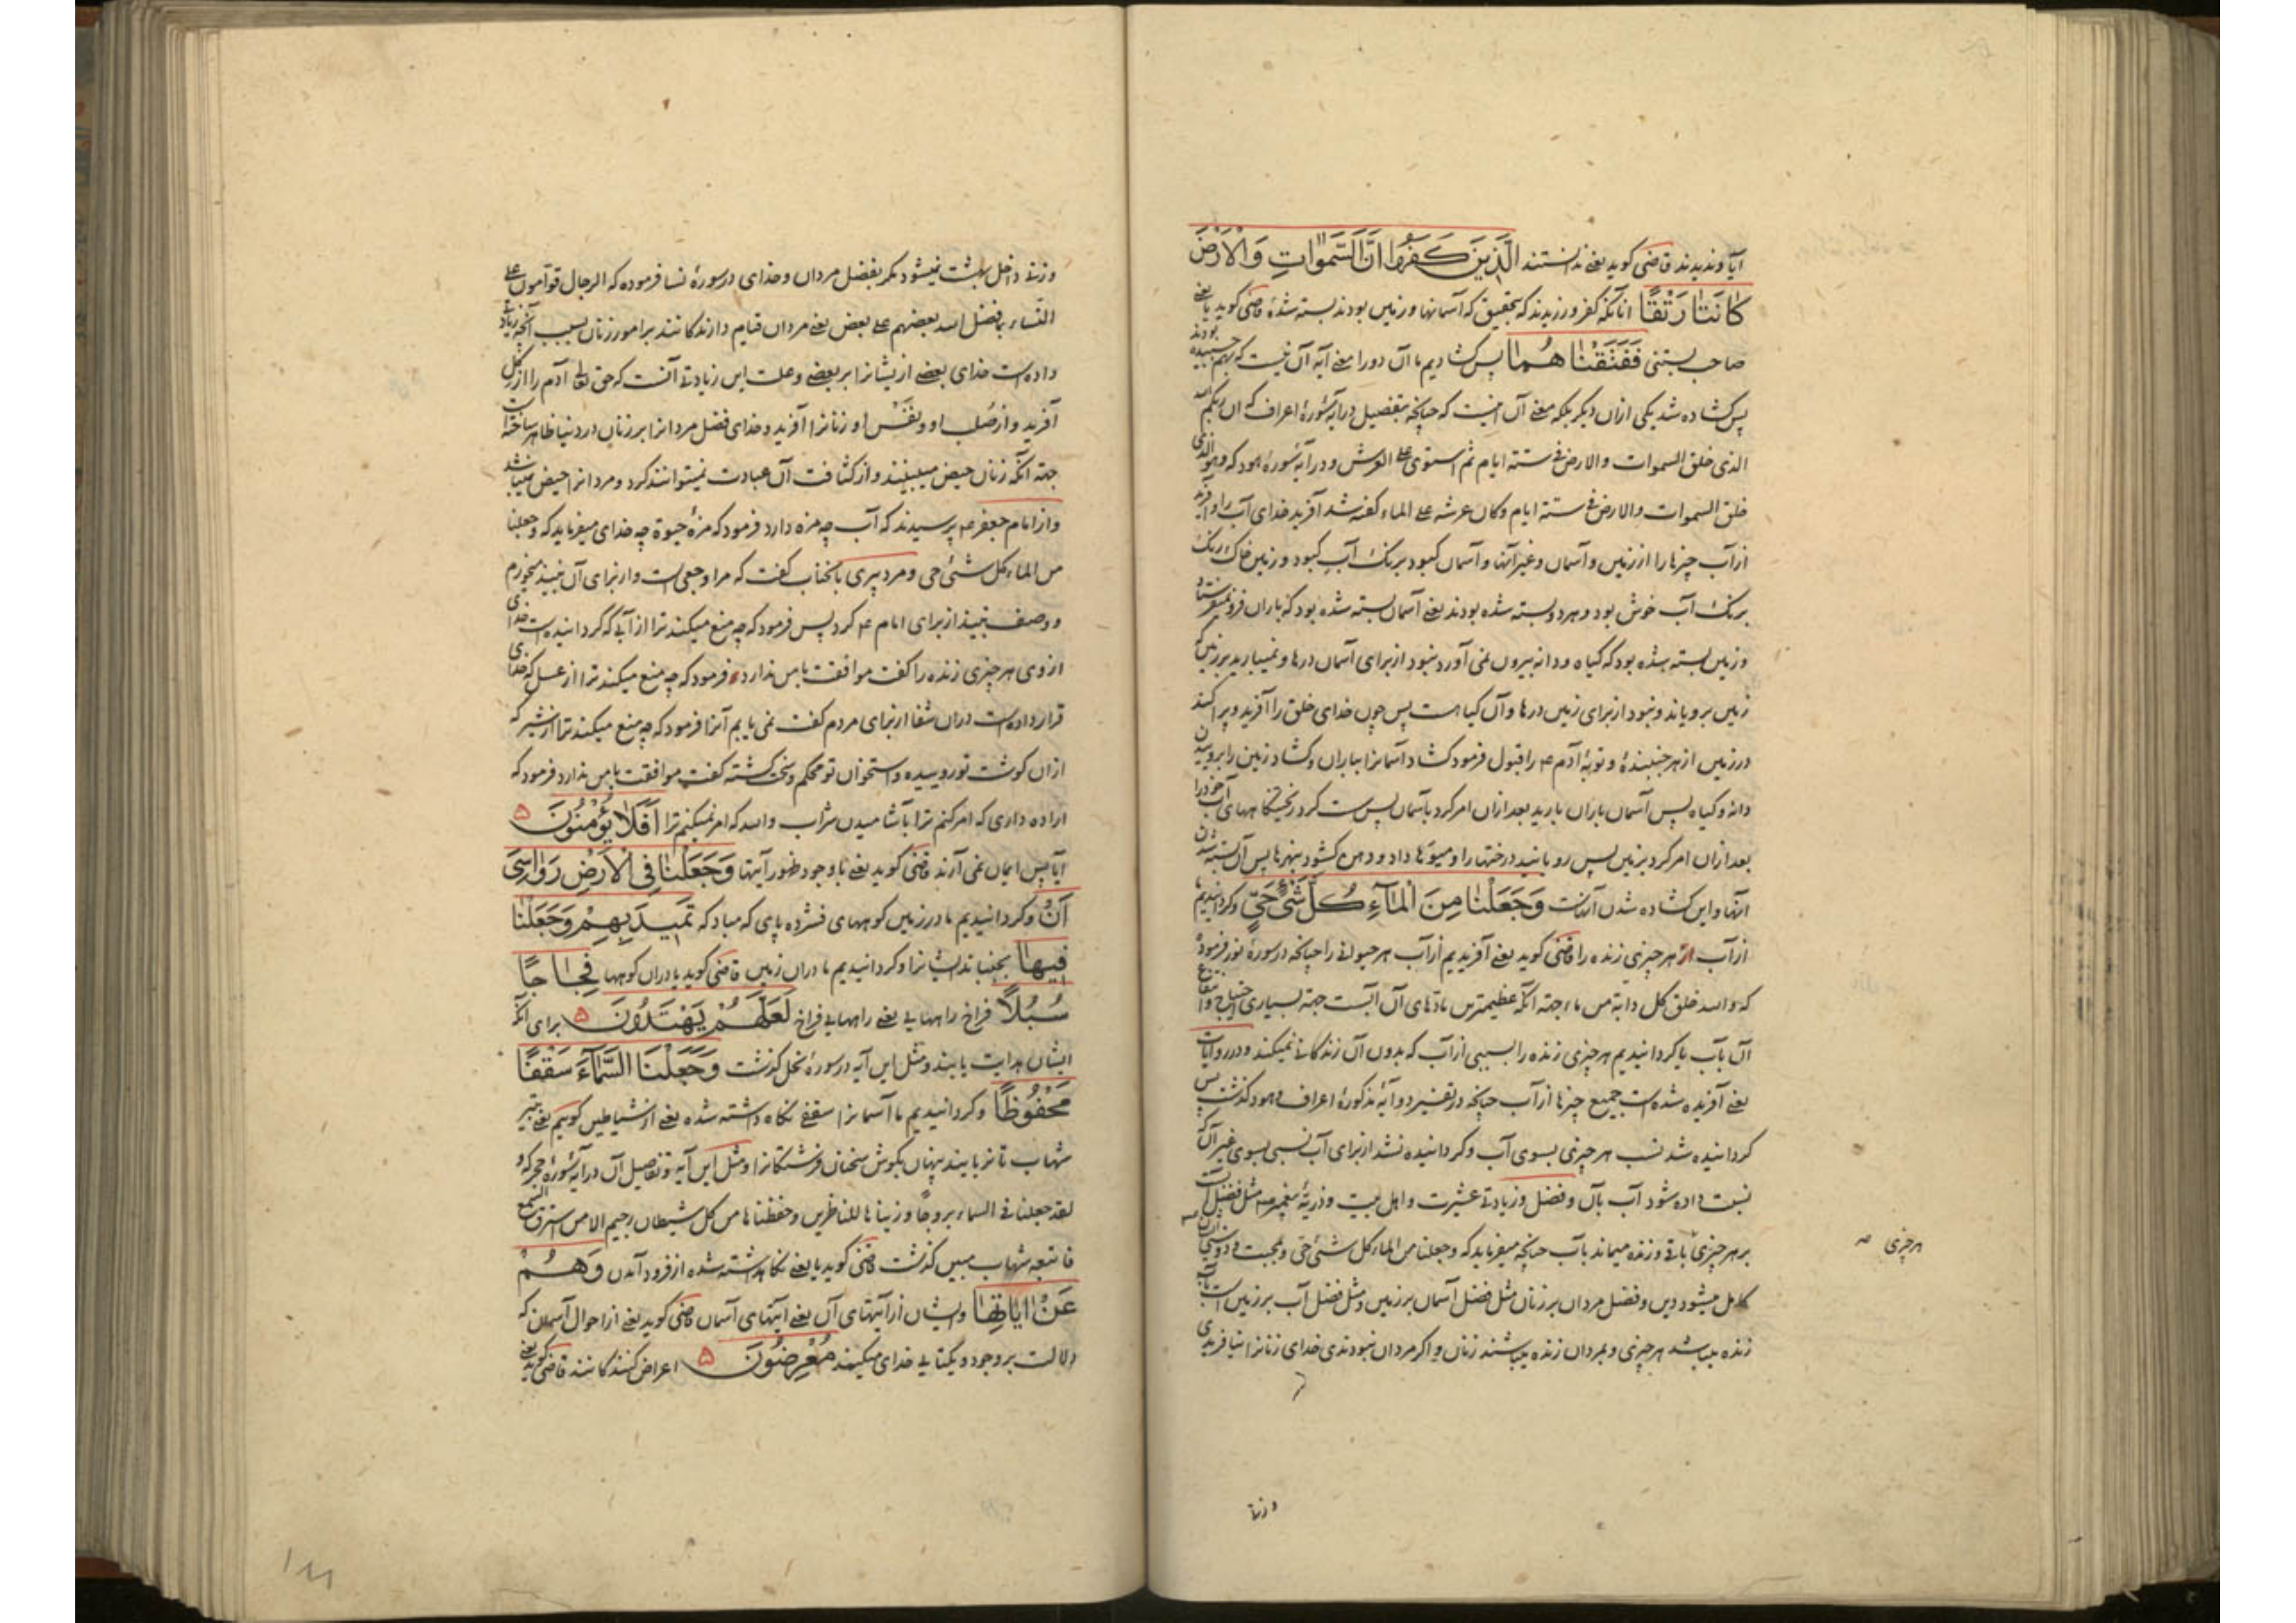 آیا و ندیدند قاضی کوید یعنے ندانستند الَّذِینَ کَفَرُوا اَنَّ السَّمٰوَاتِ وَالْاَرْضَ
کَانَتَا رَتْقًا انانکه کفر ورزیدند که بتحقیق که آسمانها و زمین بودند بسته شدهٔ قاضی کوید یا یعنے بودند
صاحب بستنی فَفَتَقْنَا هُمَا پس کشادیم ما آن دو را معنے آیه آن نیست که بهم چسبیده
پس کشاده شد یکی از ان دیکر بلکه معنے آن اینست که چنانچه بتفصیل در آیهٔ سورهٔ اعراف که ان ربکم الله
الذی خلق السموات والارض فے ستة ایام ثم استوی علے العرش و در آیهٔ سورهٔ هود که وهو الذی
خلق السموات والارض فے ستة ایام وکان عرشه علے الماء کفته شد آفرید خدای آب را و آفرید
از آب چیزها را از زمین و آسمان و غیر آنها و آسمان کبود برنک آب کبود و زمین خاک رنک
برنک آب خوش بود و هر دو بسته شده بودند یعنے آسمان بسته شده بود که باران فرو نمیفرستاد
و زمین بسته شده بود که کیاه و دانه بیرون نمی آورد و نبود از برای آسمان درها و نمیبارید بر زمین
زمین برویاند و نبود از برای زمین درها و آن کیاهست پس چون خدای خلق را آفرید و پراکند
در زمین از هر جنبندهٔ و توبهٔ آدم ع را قبول فرمود کشاد آسمانرا بباران و کشاد زمین را برویدن
دانه و کیاه پس آسمان باران بارید بعد ازان امر کرد بآسمان پس سست کرد ریختکاههای آب خود را
بعد ازان امر کرد بزمین پس رویانید درختها را و میوها داد و دهن کشود بنهرها پس آن بسته شدن
آنها و این کشاده شدن آنهاست وَجَعَلْنَا مِنَ الْمَآءِ کُلَّ شَیْءٍ حَیٍّ و کردانیدیم ما
از آب هر چیزی زنده را قاضی کوید یعنے آفریدیم از آب هر حیوانے را چنانچه در سورهٔ نور فرموده
که والله خلق کل دابة من ماء جهة آنکه عظیمترین مادّهای آن آبست جهة بسیاری احتیاج و انتفاع
آن بآب یا کردانیدیم هر چیزی زنده را بسببی از آب که بدون آن زندکانے نمیکند و در روایات
یعنے آفریده شده است جمیع چیزها از آب چنانچه در تفسیر دو آیهٔ مذکورهٔ اعراف و هود کذشت پس
کردانیده شد نسب هر چیزی بسوی آب و کردانیده نشد از برای آب نسبی بسوی غیر آن که
نسبت داده شود آب بآن و فضل و زیادتے عشیرت و اهل بیت و ذریهٔ پیغمبر ص مثل فضل آبست
بر هر چیزی باقے و زنده میماند بآب چنانچه میفرماید که وجعلنا من الماء کل شیء حی و بمحبت و دوستی
کامل میشود دین و فضل مردان بر زنان مثل فضل آسمان بر زمین و مثل فضل آب بر زمین است بآب
زنده میباشد هر چیزی و بمردان زنده میباشند زنان و اکر مردان نبودندی خدای زنانرا نیافریدی
هرچیزی صه
و زنے
وزنے داخل بهشت نمیشود مکر بفضل مردان و خدای در سورهٔ نسا فرموده که الرجال قوامون علے
النساء بما فضل الله بعضهم علے بعض یعنے مردان قیام دارندکانند بر امور زنان بسبب آنچه زیادتے
داده است خدای بعضے از یشانرا بر بعضے و علت این زیادتے آنست که حق تعالے آدم را از کل
آفرید و از صلب او و نفس او زنانرا آفرید و خدای فضل مردانرا بر زنان در دنیا ظاهر ساخته است
جهة آنکه زنان حیض میبینند و از کثافت آن عبادت نمیتوانند کرد و مردانرا حیض نمیباشد
و از امام جعفر ع پرسیدند که آب چه مزه دارد فرمود که مزهٔ حیوة چه خدای میفرماید که وجعلنا
من الماء کل شیء حی و مرد پیری بآنجناب کفت که مرا وجعی است و از برای آن نبیذ میخورم
و وصف نبیذ از برای امام ع کرد پس فرمود که چه منع میکند ترا از آبی که کردانیده است خدای
از وی هر چیزی زنده را کفت موافقت با من ندارد فرمود که چه منع میکند ترا از عسل که خدای
قرار داده است دران شفا از برای مردم کفت نمی یابم آنرا فرمود که چه منع میکند ترا از شیر که
ازان کوشت تو روییده و استخوان تو محکم و سخت کشته کفت موافقت با من ندارد فرمود که
اراده داری که امر کنم ترا بآشامیدن شراب والله که امر نمیکنم ترا اَفَلَا یُؤْمِنُونَ ۵
آیا پس ایمان نمی آرند قاضی کوید یعنے با وجود ظهور آیتها وَجَعَلْنَا فِی الْاَرْضِ رَوَاسِیَ
اَنْ و کردانیدیم ما در زمین کوههای فشرده پای که مباد که تَمِیدَ بِهِمْ وَجَعَلْنَا
فِیهَا بجنباند ایشانرا و کردانیدیم ما دران زمین قاضی کوید یا دران کوهها فِجَاجًا
سُبُلًا فراخ راههایی یعنے راههایی فراخ لَعَلَّهُمْ یَهْتَدُونَ ۵ برای آنکه
ایشان هدایت یابند و مثل این آیه در سورهٔ نحل کذشت وَجَعَلْنَا السَّمَآءَ سَقْفًا
مَحْفُوظًا و کردانیدیم ما آسمانرا سقفے نکاه داشته شده یعنے از شیاطین کوییم یعنے بتیر
شهاب تا نربایند پنهان بکوش سخنان فرشتکانرا و مثل این آیه و تفصیل آن در آیهٔ سورهٔ حجر که و
لقد جعلنا فے السماء بروجًا و زیناها للناظرین و حفظناها من کل شیطان رجیم الا من استرق السمع
فاتبعه شهاب مبین کذشت قاضی کوید یا یعنے نکاهداشته شده از فرود آمدن وَهُمْ
عَنْ اٰیَاتِهَا و ایشان از آیتهای آن یعنے آیتهای آسمان قاضی کوید یعنے از احوال آسمان که
دلالت بر وجود و یکتایی خدای میکنند مُعْرِضُونَ ۵ اعراض کنندکانند قاضی کوید یعنے
۱۸۸